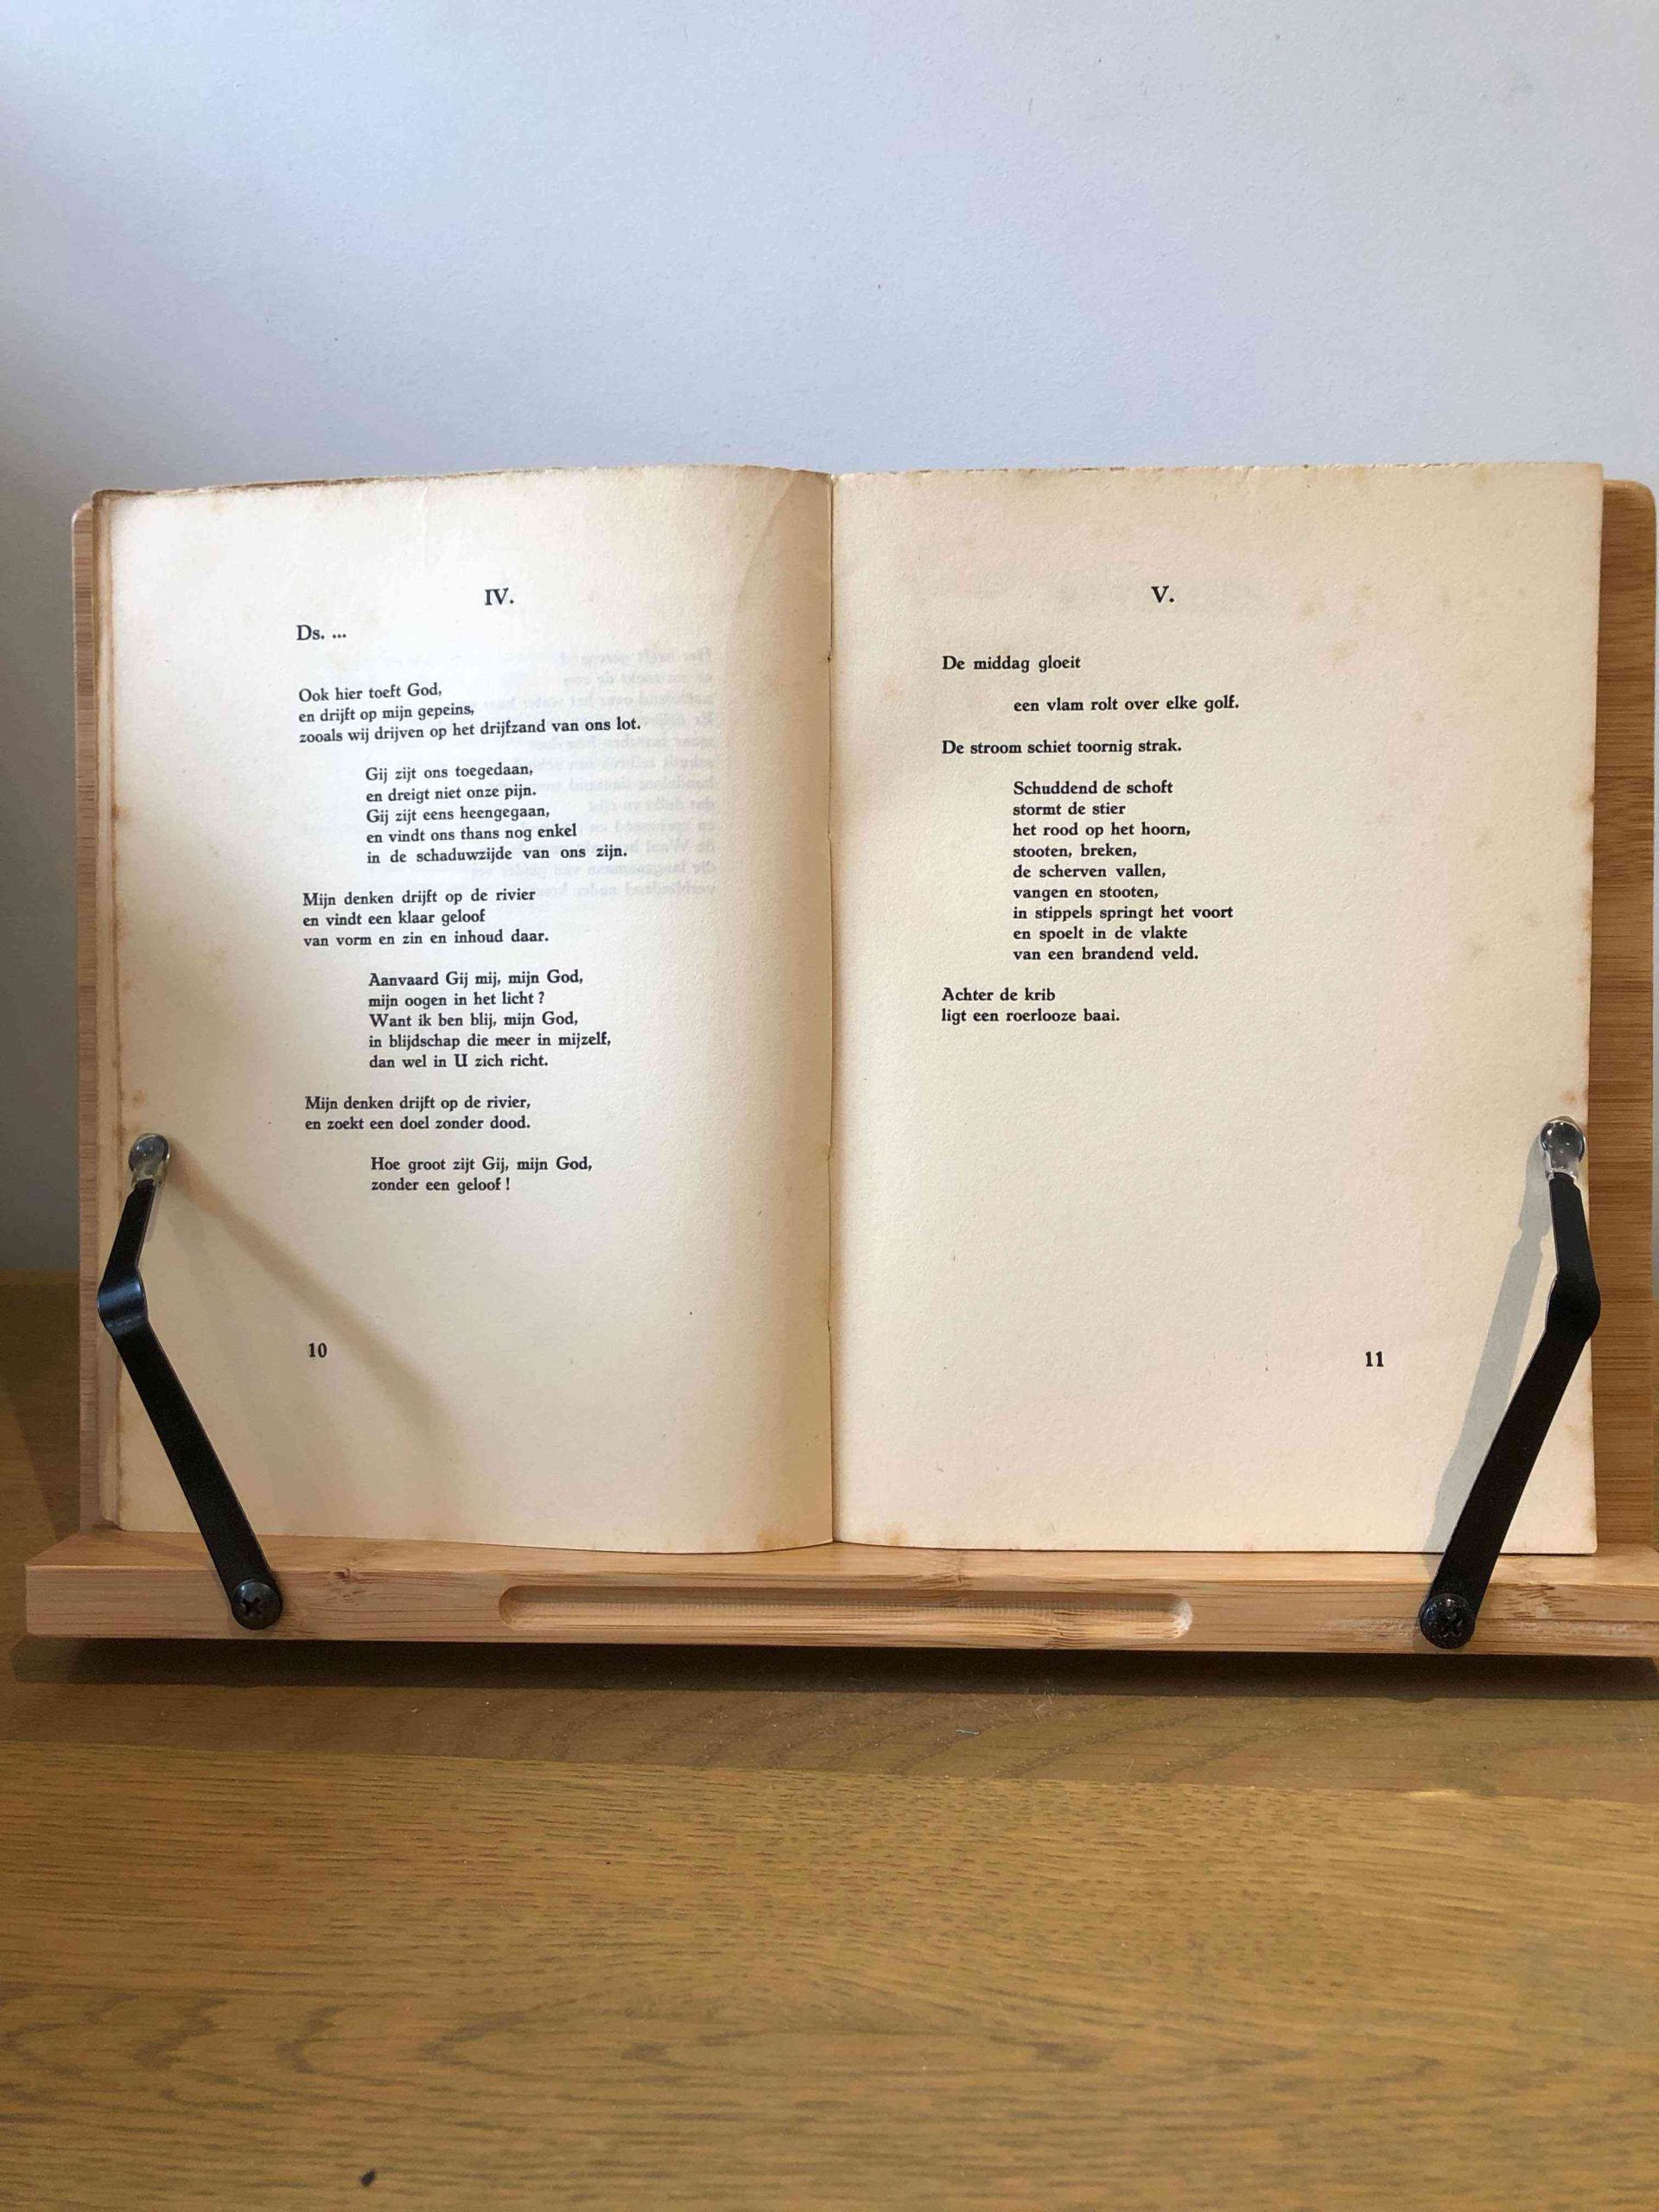 IV.
Ds. ...
Ook hier toeft God,
en drijft op mijn gepeins,
zooals wij drijven op het drijfzand van ons lot.
Gij zijt ons toegedaan,
en dreigt niet onze pijn.
Gij zijt eens heengegaan,
en vindt ons thans nog enkel
in de schaduwzijde van ons zijn.
Mijn denken drijft op de rivier
en vindt een klaar geloof
van vorm en zin en inhoud daar.
Aanvaard Gij mij, mijn God,
mijn oogen in het licht ?
Want ik ben blij, mijn God,
in blijdschap die meer in mijzelf,
dan wel in U zich richt.
Mijn denken drijft op de rivier,
en zoekt een doel zonder dood.
Hoe groot zijt Gij, mijn God,
zonder een geloof !
10
V.
De middag gloeit
een vlam rolt over elke golf.
De stroom schiet toornig strak.
Schuddend de schoft
stormt de stier
het rood op het hoorn,
stooten, breken,
de scherven vallen,
vangen en stooten,
in stippels springt het voort
en spoelt in de vlakte
van een brandend veld.
Achter de krib
ligt een roerlooze baai.
11